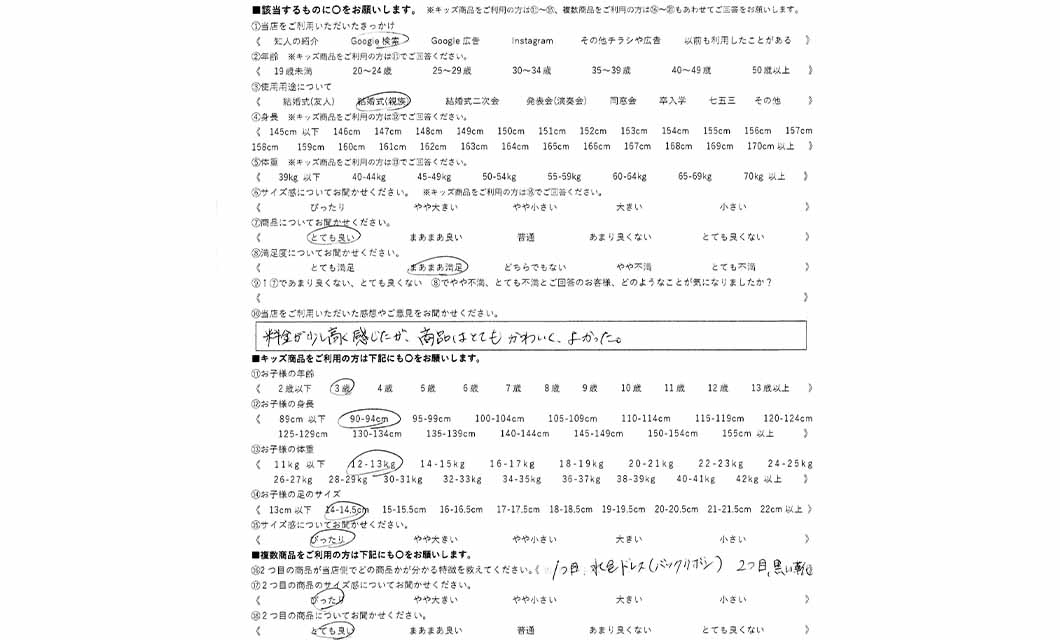 ■該当するものに〇をお願いします。 ※キッズ商品をご利用の方は⑪~⑮、複数商品をご利用の方は⑯~⑱もあわせてご回答をお願いします。
①当店をご利用いただいたきっかけ
《 知人の紹介 Google 検索 Google 広告 Instagram その他チラシや広告 以前も利用したことがある 》
②年齢 ※キッズ商品をご利用の方は⑪でご回答ください。
《 19歳未満 20~24歳 25~29歳 30~34歳 35~39歳 40~49歳 50歳以上 》
③使用用途について
《 結婚式(友人) 結婚式(親族) 結婚式二次会 発表会(演奏会) 同窓会 卒入学 七五三 その他 》
④身長 ※キッズ商品をご利用の方は⑫でご回答ください。
《 145cm 以下 146cm 147cm 148cm 149cm 150cm 151cm 152cm 153cm 154cm 155cm 156cm 157cm
158cm 159cm 160cm 161cm 162cm 163cm 164cm 165cm 166cm 167cm 168cm 169cm 170cm以上 》
⑤体重 ※キッズ商品をご利用の方は⑬でご回答ください。
《 39kg 以下 40-44kg 45-49kg 50-54kg 55-59kg 60-64kg 65-69kg 70kg 以上 》
⑥サイズ感についてお聞かせください。 ※キッズ商品をご利用の方は⑮でご回答ください。
《 ぴったり やや大きい やや小さい 大きい 小さい 》
⑦商品についてお聞かせください。
《 とても良い まあまあ良い 普通 あまり良くない とても良くない 》
⑧満足度についてお聞かせください。
《 とても満足 まあまあ満足 どちらでもない やや不満 とても不満 》
⑨↑⑦であまり良くない、とても良くない ⑧でやや不満、とても不満とご回答のお客様、どのようなことが気になりましたか?
《 》
⑩当店をご利用いただいた感想やご意見をお聞かせください。
料金が少し高く感じたが、商品はとてもかわいく、よかった。
■キッズ商品をご利用の方は下記にも〇をお願いします。
⑪お子様の年齢
《 2歳以下 3歳 4歳 5歳 6歳 7歳 8歳 9歳 10歳 11歳 12歳 13歳以上 》
⑫お子様の身長
《 89cm 以下 90-94cm 95-99cm 100-104cm 105-109cm 110-114cm 115-119cm 120-124cm
125-129cm 130-134cm 135-139cm 140-144cm 145-149cm 150-154cm 155cm 以上 》
⑬お子様の体重
《 11kg 以下 12-13kg 14-15kg 16-17kg 18-19kg 20-21kg 22-23kg 24-25kg
26-27kg 28-29kg 30-31kg 32-33kg 34-35kg 36-37kg 38-39kg 40-41kg 42kg 以上 》
⑭お子様の足のサイズ
《 13cm 以下 14-14.5cm 15-15.5cm 16-16.5cm 17-17.5cm 18-18.5cm 19-19.5cm 20-20.5cm 21-21.5cm 22cm以上 》
⑮サイズ感についてお聞かせください。
《 ぴったり やや大きい やや小さい 大きい 小さい 》
■複数商品をご利用の方は下記にも〇をお願いします。
⑯2つ目の商品が当店側でどの商品かが分かる特徴を教えてください。《 1つ目、水色ドレス(バックリボン) 2つ目、黒い靴 》
⑰2つ目の商品のサイズ感についてお聞かせください。
《 ぴったり やや大きい やや小さい 大きい 小さい 》
⑱2つ目の商品についてお聞かせください。
《 とても良い まあまあ良い 普通 あまり良くない とても良くない 》